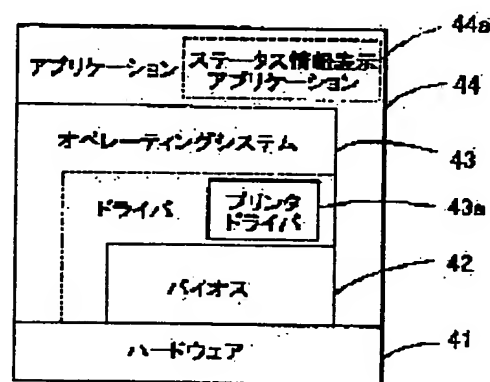 44a
アプリケーション
ステータス情報表示
アプリケーション
44
オペレーティングシステム
43
ドライバ
プリンタ
ドライバ
43a
バイオス
42
ハードウェア
41